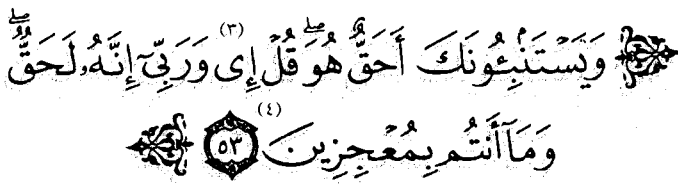 وَيَسْتَنۢبِـُٔونَكَ أَحَقٌّ هُوَۖ قُلْ إِى (٣) وَرَبِّىٓ إِنَّهُۥ لَحَقٌّۖ
وَمَآ أَنتُم بِمُعْجِزِينَ (٤) ٥٣